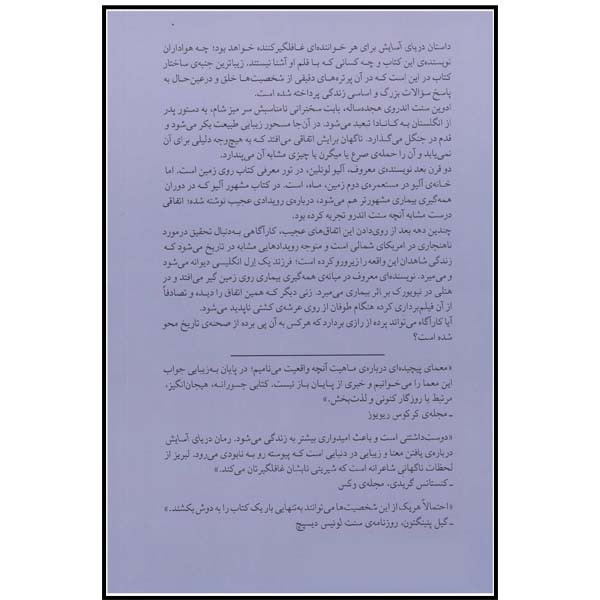 داستان دریای آسایش برای هر خواننده‌ای غافلگیرکننده خواهد بود؛ چه هواداران
نویسنده‌ی این کتاب و چه کسانی که با قلم او آشنا نیستند. زیباترین جنبه‌ی ساختار
کتاب در این است که در آن پرتره‌های دقیقی از شخصیت‌ها خلق و درعین‌حال به
پاسخ سؤالات بزرگ و اساسی زندگی پرداخته شده است.
ادوین سنت اندروی هجده‌ساله، بابت سخنرانی نامناسبش سر میز شام، به دستور پدر
از انگلستان به کانادا تبعید می‌شود. در آن‌جا مسحور زیبایی طبیعت بکر می‌شود و
قدم در جنگل می‌گذارد. ناگهان برایش اتفاقی می‌افتد که به هیچ‌وجه دلیلی برای آن
نمی‌یابد و آن را حمله‌ی صرع یا میگرن یا چیزی مشابه آن می‌پندارد.
دو قرن بعد نویسنده‌ی معروف، آلیو لولین، در تور معرفی کتاب روی زمین است. اما
خانه‌ی آلیو در مستعمره‌ی دوم زمین، ماه، است. در کتاب مشهور آلیو که در دوران
همه‌گیری بیماری مشهورتر هم می‌شود، درباره‌ی رویدادی عجیب نوشته شده؛ اتفاقی
درست مشابه آنچه سنت اندرو تجربه کرده بود.
چندین دهه بعد از روی‌دادن این اتفاق‌های عجیب، کارآگاهی به‌دنبال تحقیق درمورد
ناهنجاری در امریکای شمالی است و متوجه رویدادهایی مشابه در تاریخ می‌شود که
زندگی شاهدان این واقعه را زیرورو کرده است؛ فرزند یک اِرل انگلیسی دیوانه می‌شود
و می‌میرد. نویسنده‌ای معروف در میانه‌ی همه‌گیری بیماری روی زمین گیر می‌افتد و در
هتلی در نیویورک بر اثر بیماری می‌میرد. زنی دیگر که همین اتفاق را دیده و تصادفاً
از آن فیلم‌برداری کرده هنگام طوفان از روی عرشه‌ی کشتی ناپدید می‌شود.
آیا کارآگاه می‌تواند پرده از رازی بردارد که هرکس به آن پی برده از صحنه‌ی تاریخ محو
شده است؟
«معمای پیچیده‌ای درباره‌ی ماهیت آنچه واقعیت می‌نامیم؛ در پایان به‌زیبایی جواب
این معما را می‌خوانیم و خبری از پایـان باز نیست. کتابی جسورانه، هیجان‌انگیز،
مرتبط با روزگار کنونی و لذت‌بخش.»
ـ مجله‌ی کرکوس ریویوز
«دوست‌داشتنی است و باعث امیدواری بیشتر به زندگی می‌شود. رمان دریای آسایش
درباره‌ی یافتن معنا و زیبایی در دنیایی است که پیوسته رو به نابودی می‌رود. لبریز از
لحظات ناگهانی شاعرانه است که شیرینی نابشان غافلگیرتان می‌کند.»
ـ کنستانس گریدی، مجله‌ی وکس
«احتمالاً هریک از این شخصیت‌ها می‌توانند به‌تنهایی بار یک کتاب را به دوش بکشند.»
ـ گیل پنینگتون، روزنامه‌ی سنت لوئیس دیسپچ